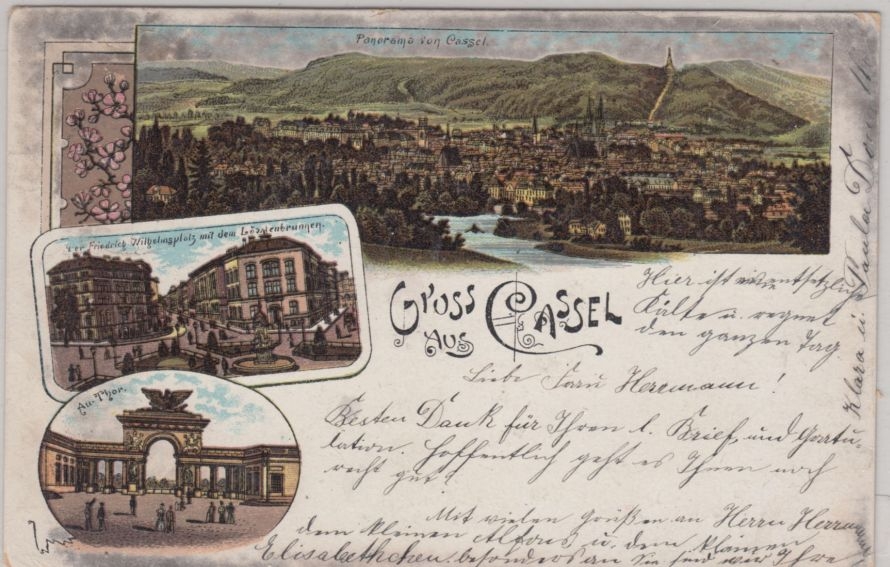 Panorama von Cassel.
Der Friedrich Wilhelmsplatz mit dem Löwenbrunnen.
Au-Thor.
Gruss
aus Cassel
Hier ist eine entsetzliche
Kälte u. regnet
den ganzen Tag
Liebe Frau Herrmann!
Besten Dank für Ihren l. Brief und Gratu-
lation. Hoffentlich geht es Ihnen noch
recht gut?
Mit vielen Grüßen an Herrn Herrmann
dem kleinen Alfons u. dem
Elisabethchen besonders an Sie sind wir Ihre
Klara u. Paula